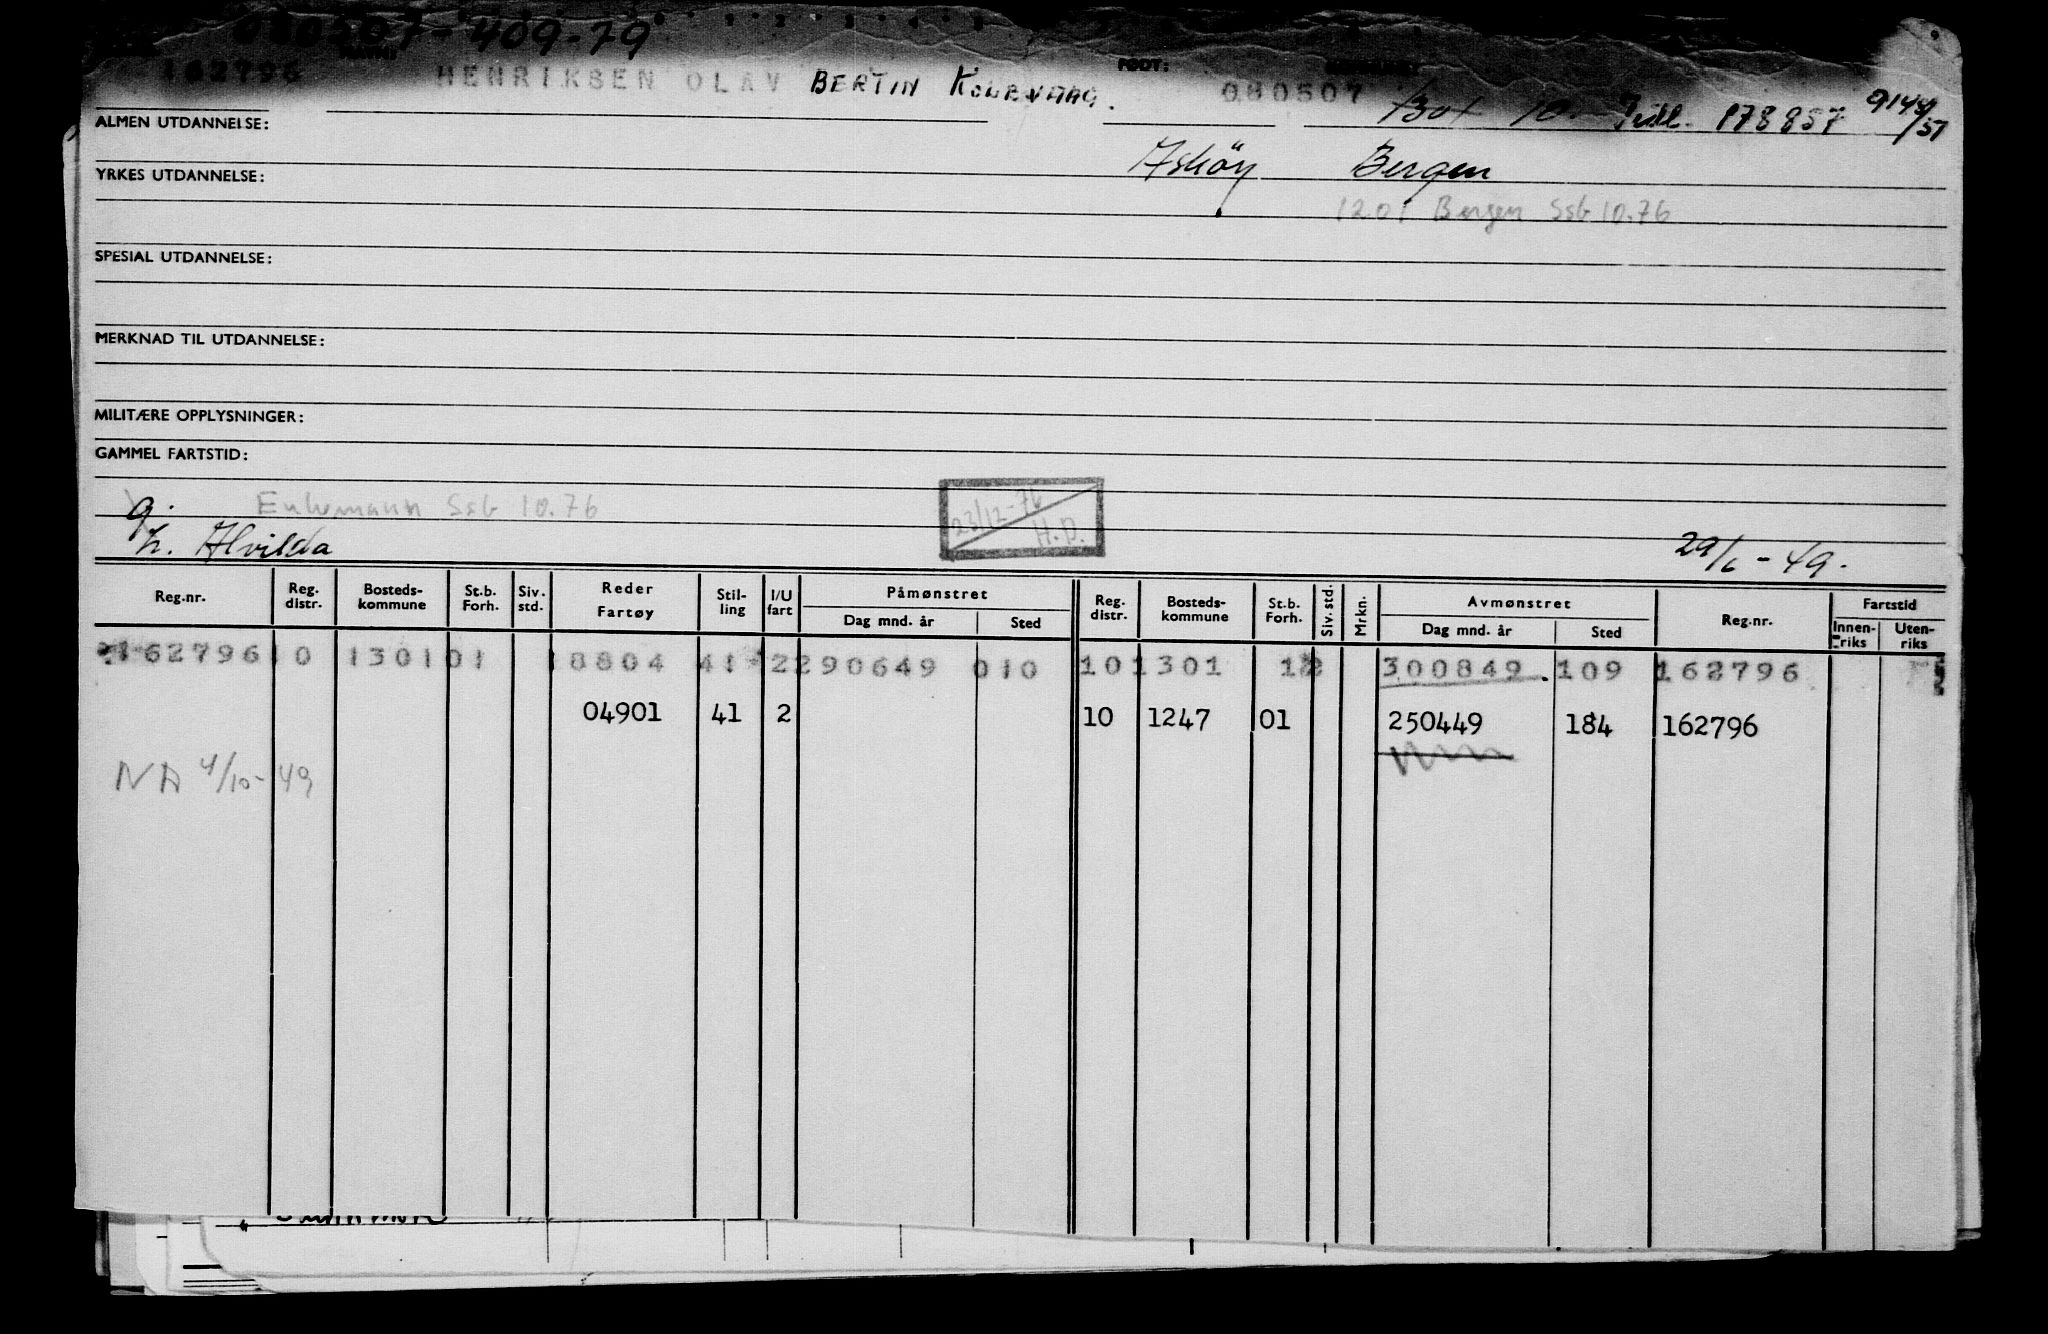 080507-409-79
162796 HENRIKSEN OLAV BERTIN KOLBVAAG. FØDT: 080507 1301 10. Jull. 178857 9144/51
ALMEN UTDANNELSE:
Asköy Bergen
YRKES UTDANNELSE:
1201 Bergen Ssb 10.76
SPESIAL UTDANNELSE:
MERKNAD TIL UTDANNELSE:
MILITÆRE OPPLYSNINGER:
GAMMEL FARTSTID:
g. Enkemann Ssb 10.76 23/12-76 H.P.
h. Alvilda 29/6-49.
Reg.nr. Reg. distr. Bosteds-kommune St.b. Forh. Siv. std. Reder Fartøy Stil-ling I/U fart Påmønstret Dag mnd. år Sted Reg. distr. Bosteds-kommune St.b. Forh. Siv. std. Mrkn. Avmønstret Dag mnd. år Sted Reg.nr. Fartstid Innen-riks Uten-riks
162796 10 1301 01 18804 41 2 290649 010 10 1301 12 300849. 109 162796
04901 41 2 10 1247 01 250449 184 162796
NA 4/10-49